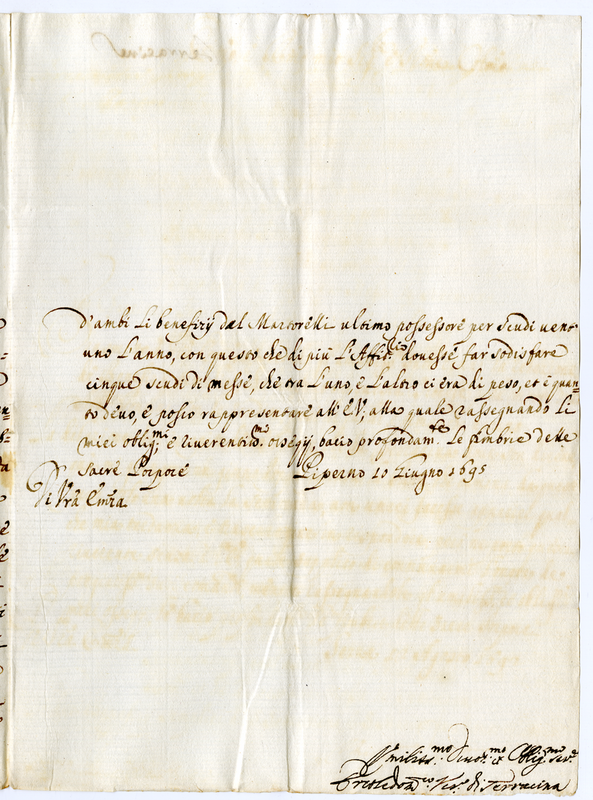 d'ambi li benefizij del Martorelli ultimo possessore per scudi vent'
uno l'anno, con questo che di più l'Affit.rio dovesse far sodisfare
cinque scudi di messe, che tra l'uno, e l'altro ci era di peso, et è quan=
to devo, e posso rappresentare all'E.V., alla quale rassegnando li
miei oblig.mi, e riverentiss.mi ossequij, bacio profondam.te le fimbrie delle
Sacre Porpore Piperno 10 Giugno 1695
Di Vr̃a Em̃za
Humiliss.mo Devot.mo et Oblig.mo Ser.e
Ves.o di Terracina